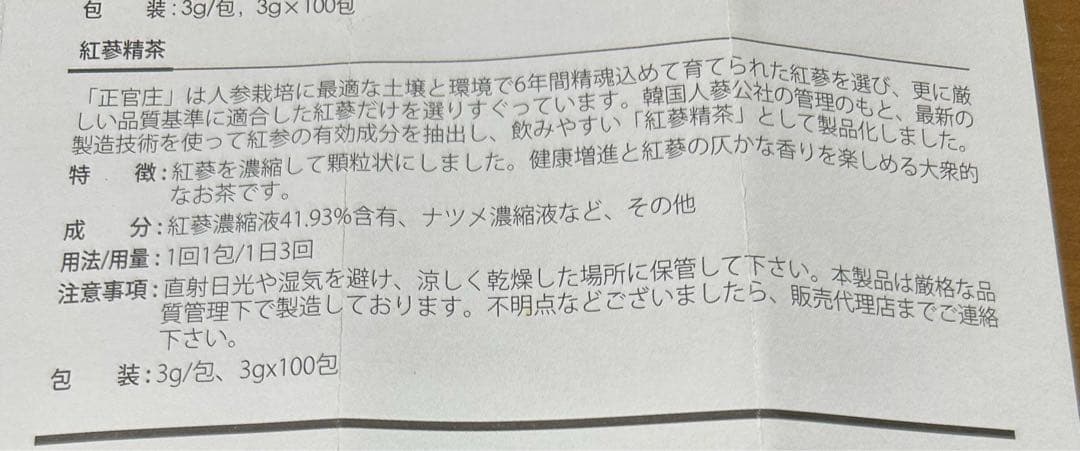 包　　装:3g/包, 3g×100包
紅蔘精茶
「正官庄」は人参栽培に最適な土壌と環境で6年間精魂込めて育てられた紅蔘を選び、更に厳
しい品質基準に適合した紅蔘だけを選りすぐっています。韓国人蔘公社の管理のもと、最新の
製造技術を使って紅参の有効成分を抽出し、飲みやすい「紅蔘精茶」として製品化しました。
特　　徴:紅蔘を濃縮して顆粒状にしました。健康増進と紅蔘の仄かな香りを楽しめる大衆的
なお茶です。
成　　分:紅蔘濃縮液41.93%含有、ナツメ濃縮液など、その他
用法/用量:1回1包/1日3回
注意事項:直射日光や湿気を避け、涼しく乾燥した場所に保管して下さい。本製品は厳格な品
質管理下で製造しております。不明点などございましたら、販売代理店までご連絡
下さい。
包　　装:3g/包、3gx100包